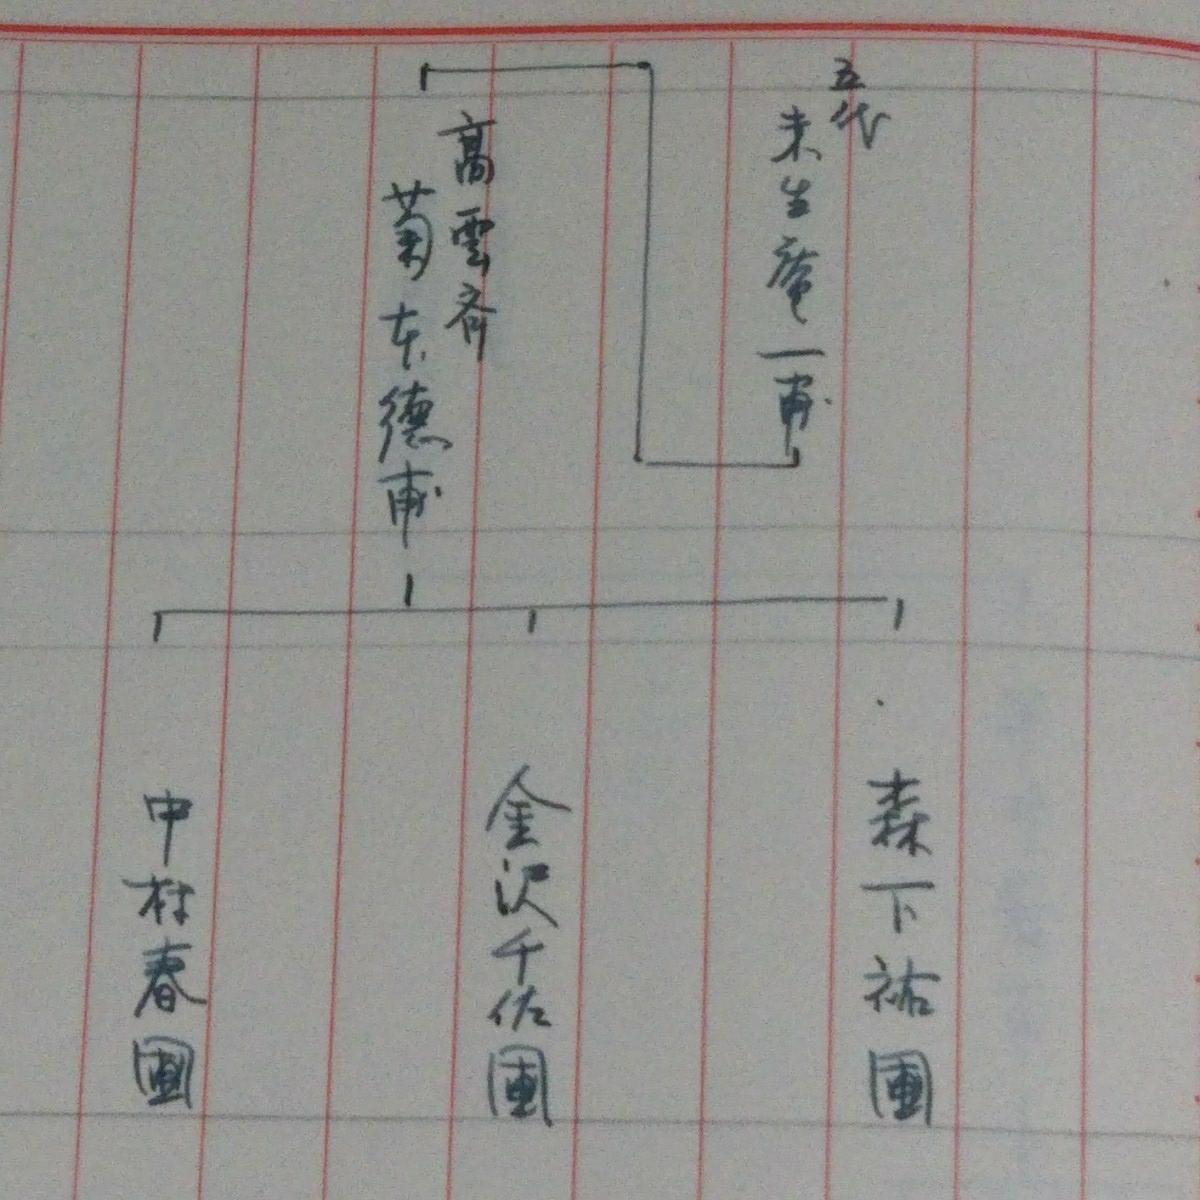 五代
未生庵一甫
高雲斉
菊本徳甫
森下祐圃
金沢千佐圃
中村春圃